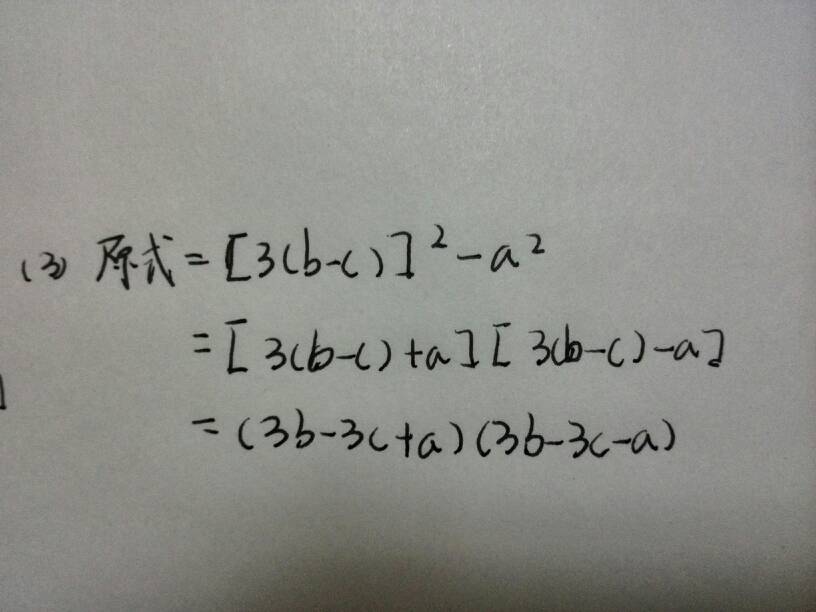 (3) 原式=[3(b-c)]²-a²
=[3(b-c)+a][3(b-c)-a]
=(3b-3c+a)(3b-3c-a)